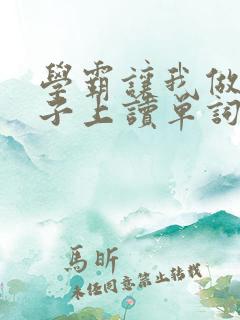 學霸讓我做
子上讀單詞
馬昕
未經同意禁止轉載